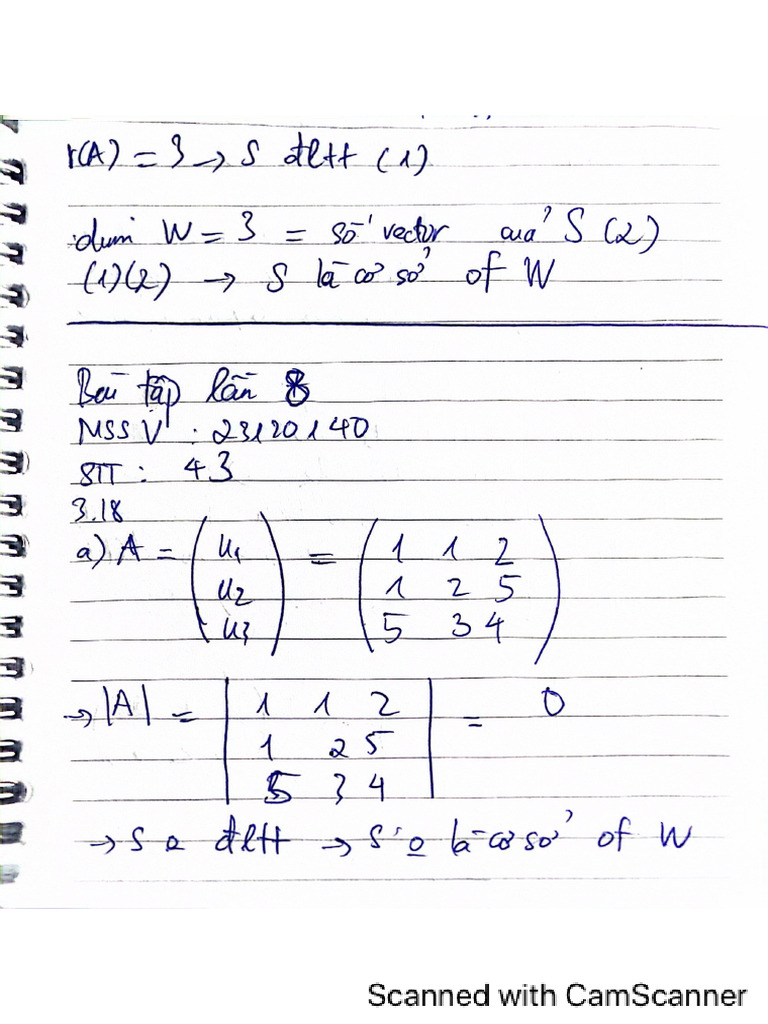 r(A) = 3 → S đltt (1)
dim W = 3 = số vector của S (2)
(1)(2) → S là cơ sở of W
Bài tập lần 8
MSSV : 23120140
STT : 43
3.18
a) A = ( u1 ) = ( 1 1 2 )
( u2 ) ( 1 2 5 )
( u3 ) ( 5 3 4 )
→ |A| = | 1 1 2 | = 0
| 1 2 5 |
| 5 3 4 |
→ S o đltt → S o là cơ sở of W
Scanned with CamScanner